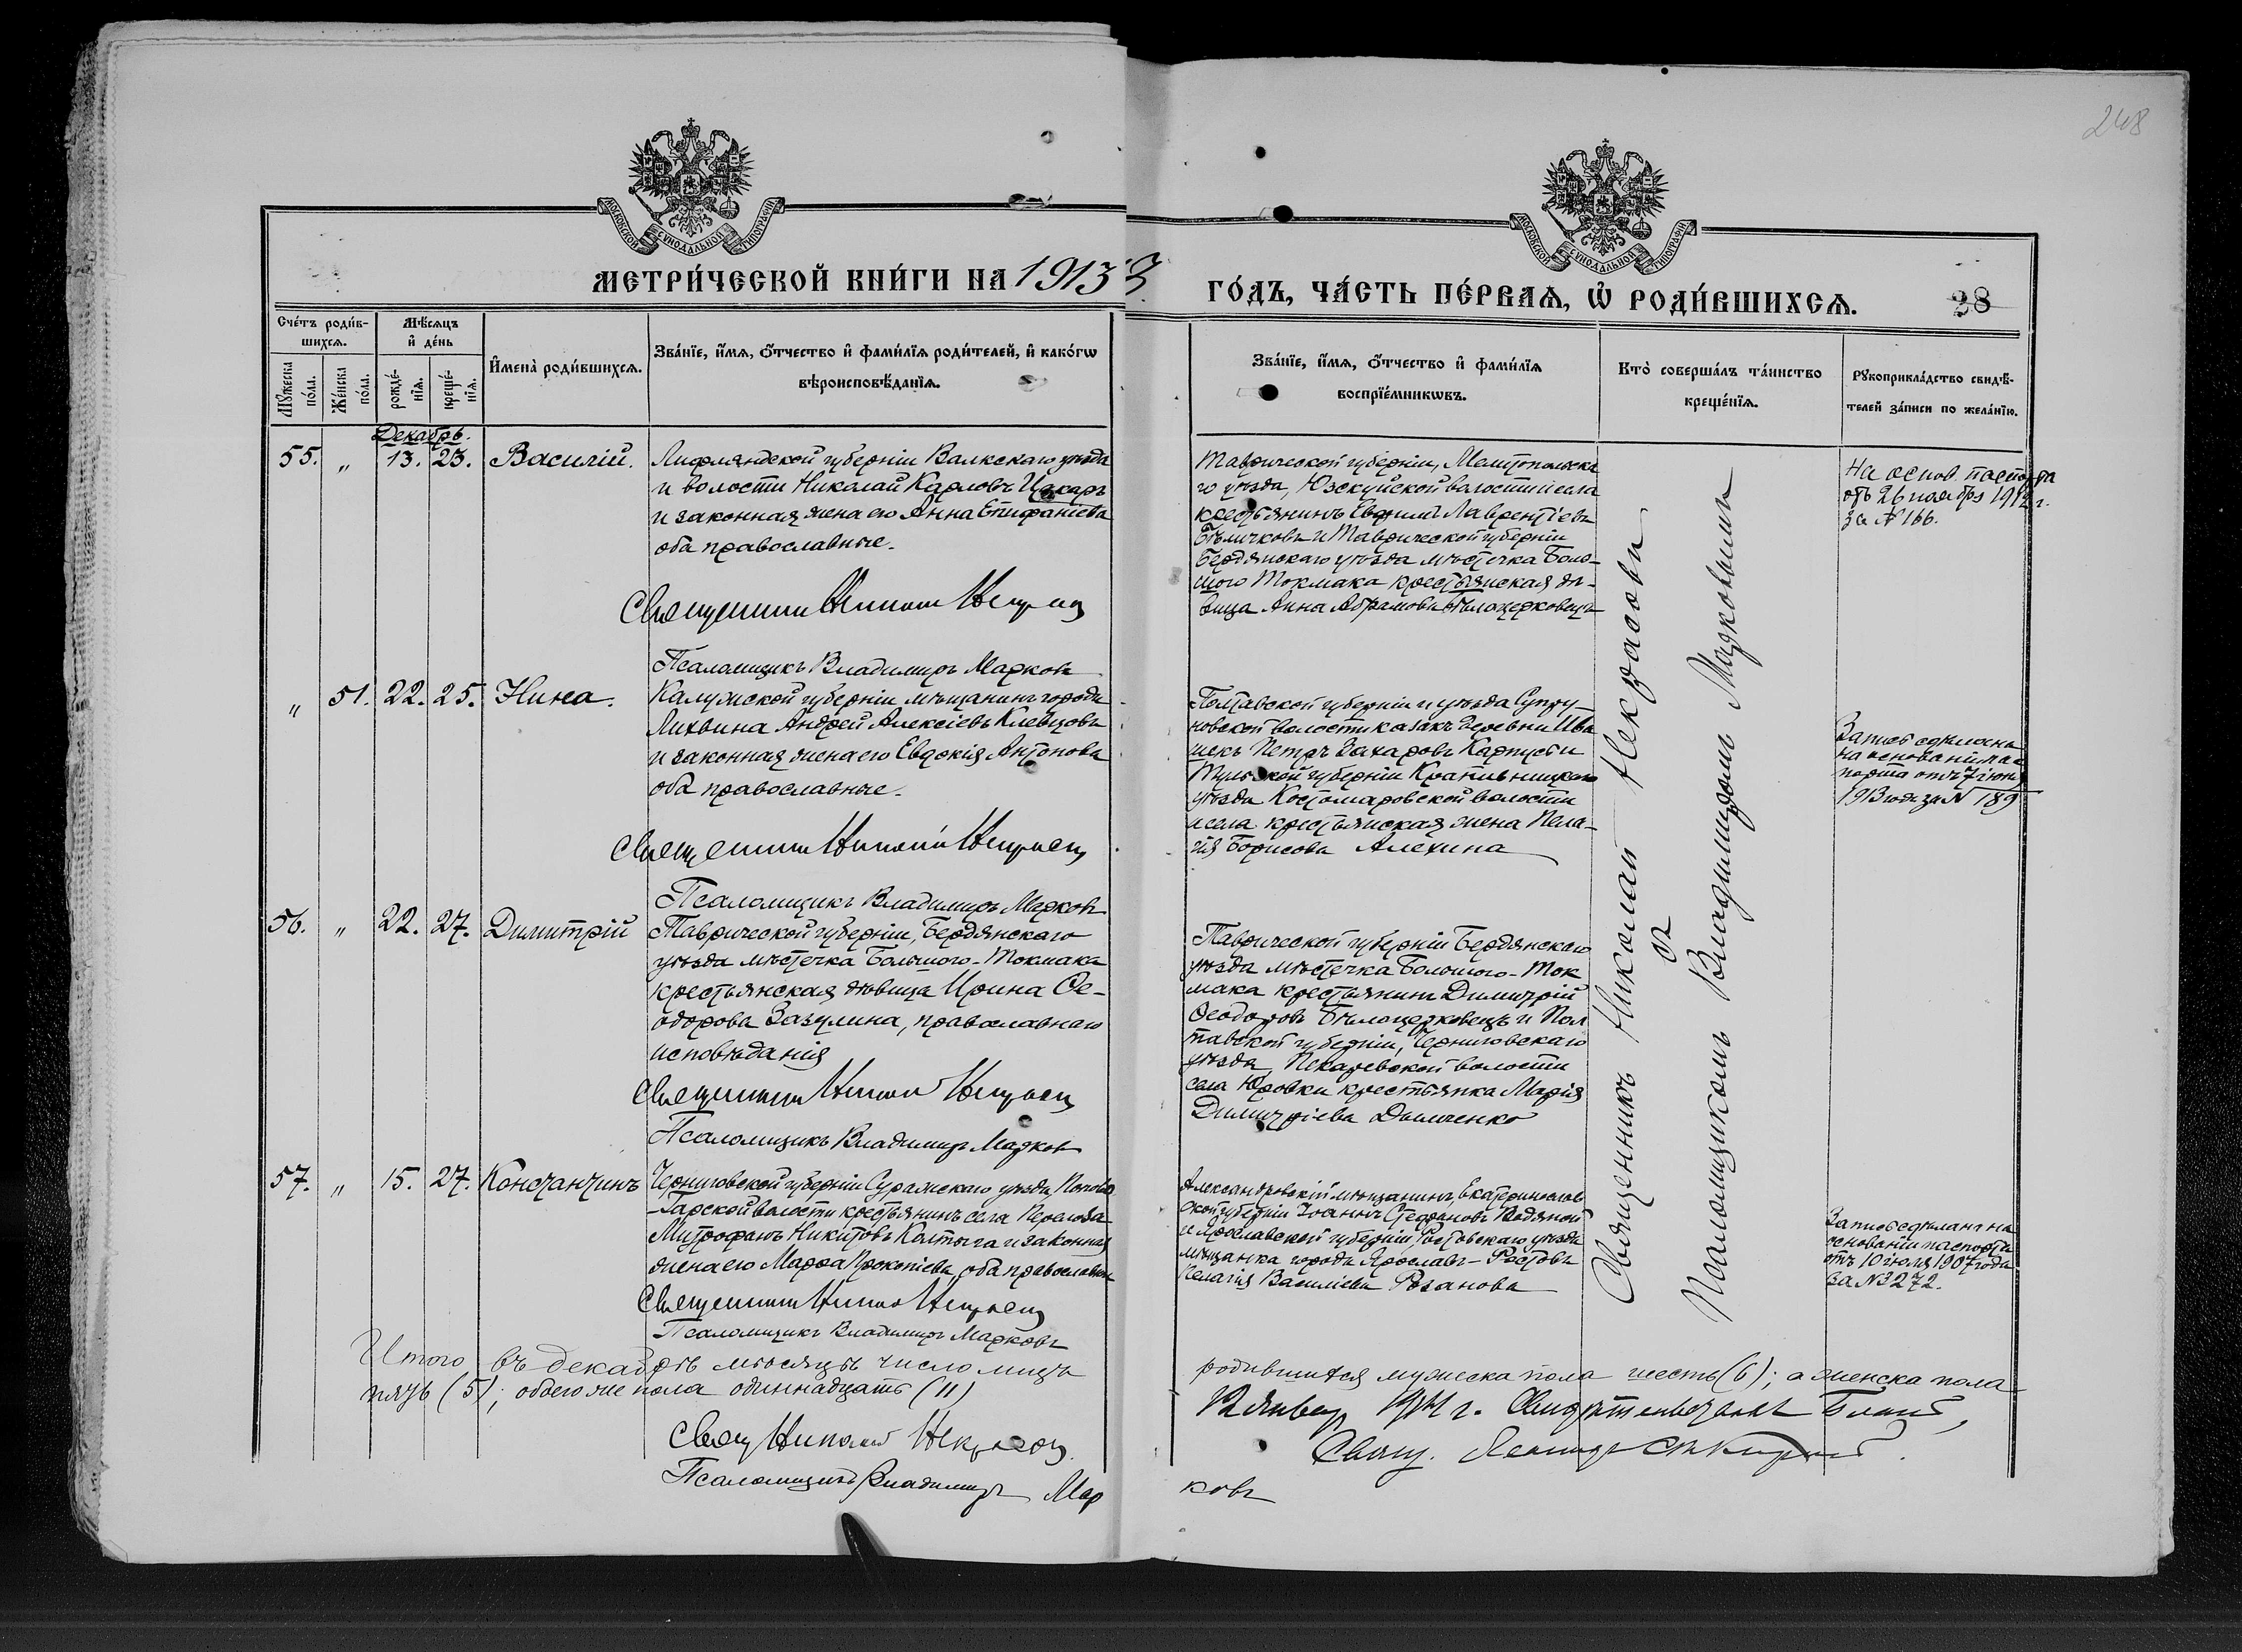 248
МОСКОВСКОЙ СУНОДАЛЬНОЙ ТИПОГРАФІИ
МОСКОВСКОЙ СУНОДАЛЬНОЙ ТИПОГРАФІИ
МЕТРИ́ЧЕСКОЙ КНИ́ГИ НА 1913
ГО́ДЪ, ЧА́СТЬ ПЕ́РВАѦ, Ѡ҆ РОДИ́ВШИХСѦ.
28
Сче́тъ роди́в-
шихсѧ.
Мꙋ́жеска по́ла.
Же́нска по́ла.
Мѣ́сѧцъ
и҆ де́нь
рожде́-
нїѧ.
креще́-
нїѧ.
И҆мена̀ роди́вшихсѧ.
Зва́нїе, и҆́мѧ, ѻ҆́тчество и҆ фами́лїѧ роди́телей, и҆ како́гѡ
вѣроисповѣ́данїѧ.
Зва́нїе, и҆́мѧ, ѻ҆́тчество и҆ фами́лїѧ
воспрїе́мникѡвъ.
Кто̀ соверша́лъ та́инство
креще́нїѧ.
Рꙋкоприкла́дство свидѣ́-
телей за́писи по жела́нїю.
Декабрь.
55. " 13. 23. Василій.
Лифляндской губерніи Валкскаго уѣзда
и волости Николай Карловъ
и законная жена его Анна Епифаніева
оба православные.
Священникъ Николай Некрасовъ
Псаломщикъ Владимиръ Марковъ
Таврической губерніи, Мелитопольска
го уѣзда, Юзкуйской волости и села
крестьянинъ Евфимъ Лаврентіевъ
Бѣличковъ и Таврической губерніи
Бердянскаго уѣзда мѣстечка Боль-
шого Токмака крестьянская дѣ-
вица Анна Абрамова Бѣлоцерковецъ
На основ. паспорта
отъ 26 ноября 1912 г.
за № 166.
" 51. 22. 25. Нина.
Калужской губерніи мѣщанинъ города
Лихвина Андрей Алексіевъ Клевцовъ
и законная жена его Евдокія Антонова
оба православные.
Священникъ Николай Некрасовъ
Псаломщикъ Владимиръ Марковъ
Полтавской губерніи и уѣзда Супру-
новской волости казакъ деревни Ива
шекъ Петръ Захаровъ Карпусь и
Тульской губерніи Крапивницкаго
уѣзда Костомаровской волости
и села крестьянская жена Пела-
гія Борисова Алехина
Запись сдѣлана
на основаніи пас
порта отъ 7 іюня
1913 года за № 189
56. " 22. 27. Димитрій
Таврической губерніи, Бердянскаго
уѣзда мѣстечка Большого-Токмака
крестьянская дѣвица Ирина Ѳе-
одорова Зазулина, православнаго
исповѣданія
Священникъ Николай Некрасовъ
Псаломщикъ Владимиръ Марковъ
Таврической губерніи Бердянскаго
уѣзда мѣстечка Большого-Ток
мака крестьянинъ Димитрій
Ѳеодоровъ Бѣлоцерковецъ и Пол
тавской губерніи, Черниговскаго
уѣзда, Пекаревской волости
села Юровки крестьянка Марія
Димитріева
57. " 15. 27. Константинъ
Черниговской губерніи Суражскаго уѣзда, Попово
-Горской волости крестьянинъ села
Митрофанъ Никитовъ Колтыга и законная
жена его Марѳа Прокопіева, оба православные
Священникъ Николай Некрасовъ
Псаломщикъ Владимиръ Марковъ
Александровскій мѣщанинъ Екатеринослав
ской губерніи Іоаннъ Стефановъ Водяной
и Ярославской губерніи, Ростовскаго уѣзда
мѣщанка города Ярославъ-Ростовъ
Пелагія Василіева Розанова
Запись сдѣлана на
основаніи паспорта
отъ 10 іюля 1907 года
за № 3272.
Священникъ Николай Некрасовъ
съ
Псаломщикомъ Владимиромъ Марковымъ
Итого въ декабрѣ мѣсяцѣ число лицъ родившихся мужеска пола шесть (6); а женска пола
пять (5); обоего же пола одиннадцать (11)
Свящ Николай Некрасовъ.
Псаломщикъ Владимиръ Марковъ
1914 г.
Свящ. Леонидъ